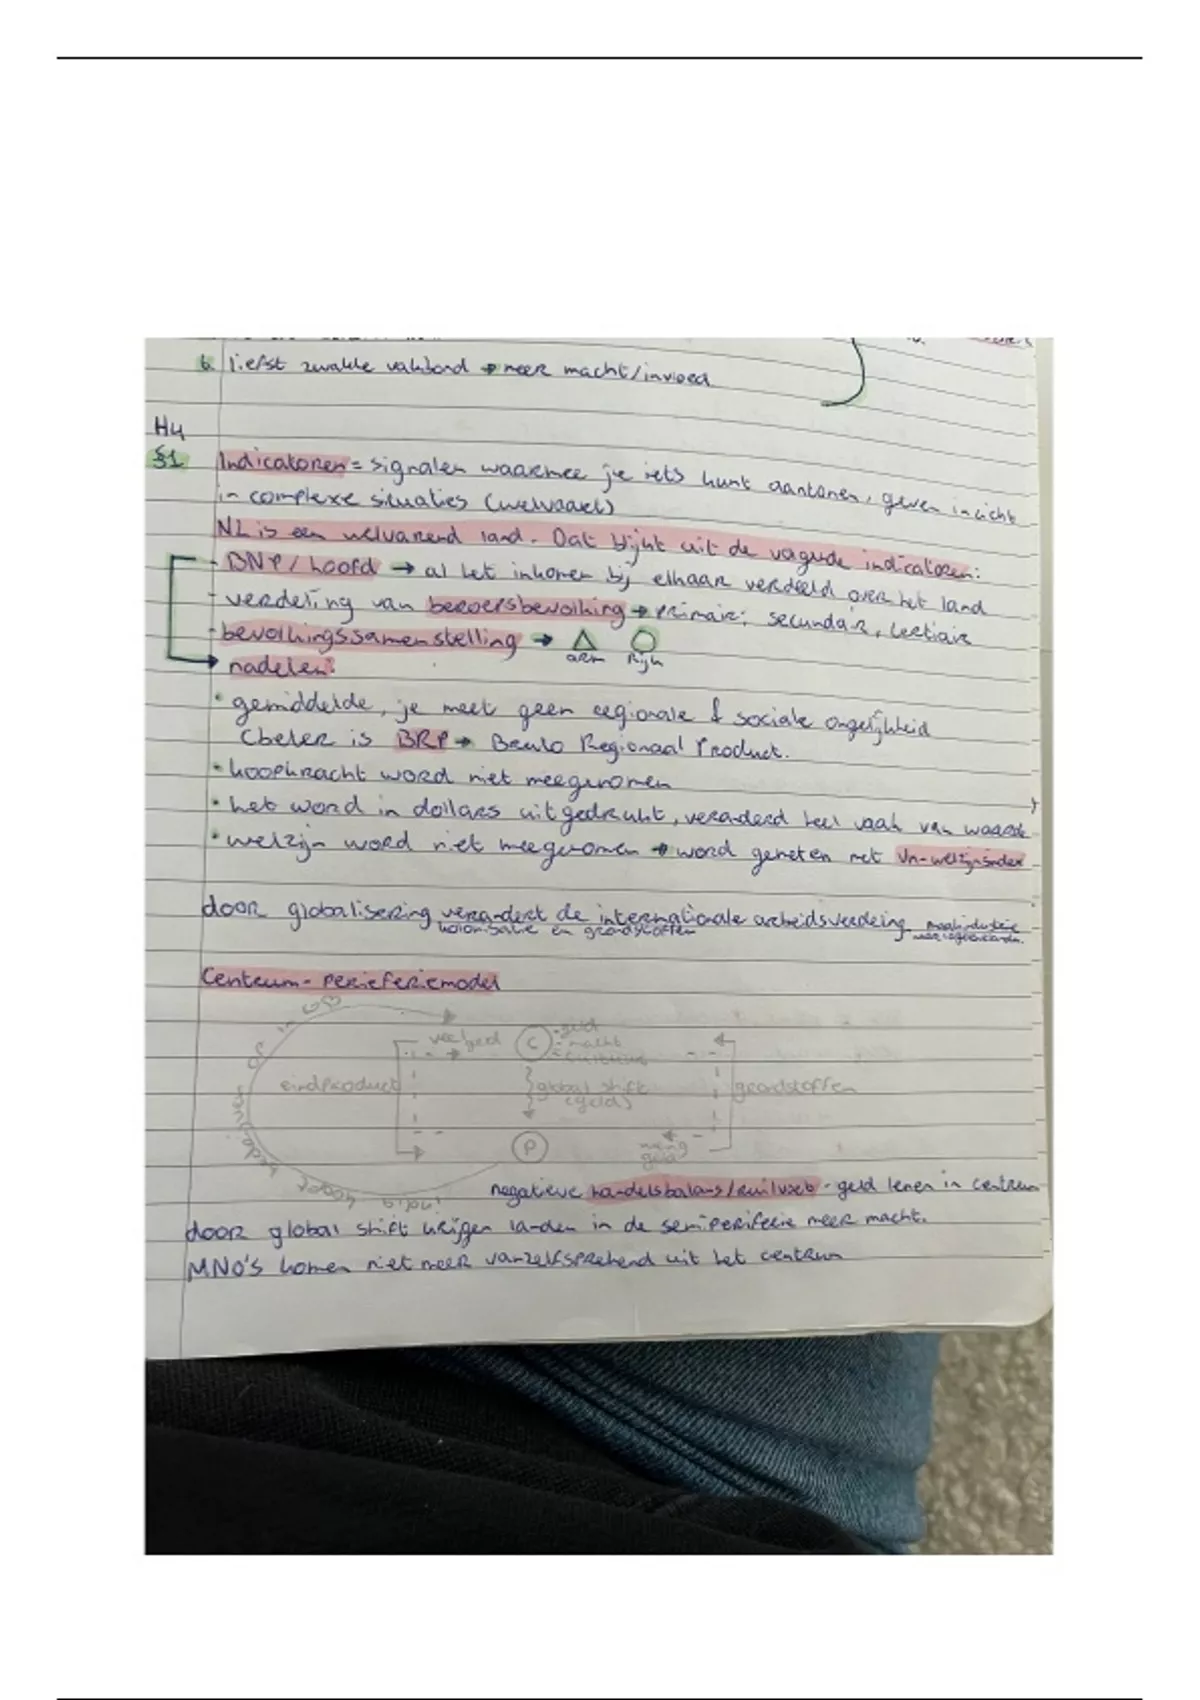 6. liefst zwakke vakbond → meer macht/invloed
H4
§1 Indicatoren = signalen waarmee je iets kunt aantonen, geven inzicht
in complexe situaties (welvaart)
NL is een welvarend land. Dat blijkt uit de volgende indicatoren:
- BNP/hoofd → al het inkomen bij elkaar verdeeld over het land
- verdeling van beroepsbevolking → primair, secundair, tertiair
- bevolkingssamenstelling → △ ○
arm Rijk
→ nadelen:
• gemiddelde, je meet geen regionale & sociale ongelijkheid
(beter is BRP → Bruto Regionaal Product.
• koopkracht word niet meegenomen
• het word in dollars uitgedrukt, veranderd heel vaak van waarde
• welzijn word niet meegenomen → word gemeten met VN-welzijnsindex
door globalisering verandert de internationale arbeidsverdeling
kolonisatie en grondstoffen
Centrum-periferiemodel
veel geld C - geld
- macht
- cultuur
eindproduct global shift grondstoffen
(geld)
P weinig geld
india koopt bedrijven op in GB
negatieve handelsbalans/ruilvoet - geld lenen in centrum
door global shift krijgen landen in de semiperiferie meer macht.
MNO's komen niet meer vanzelfsprekend uit het centrum